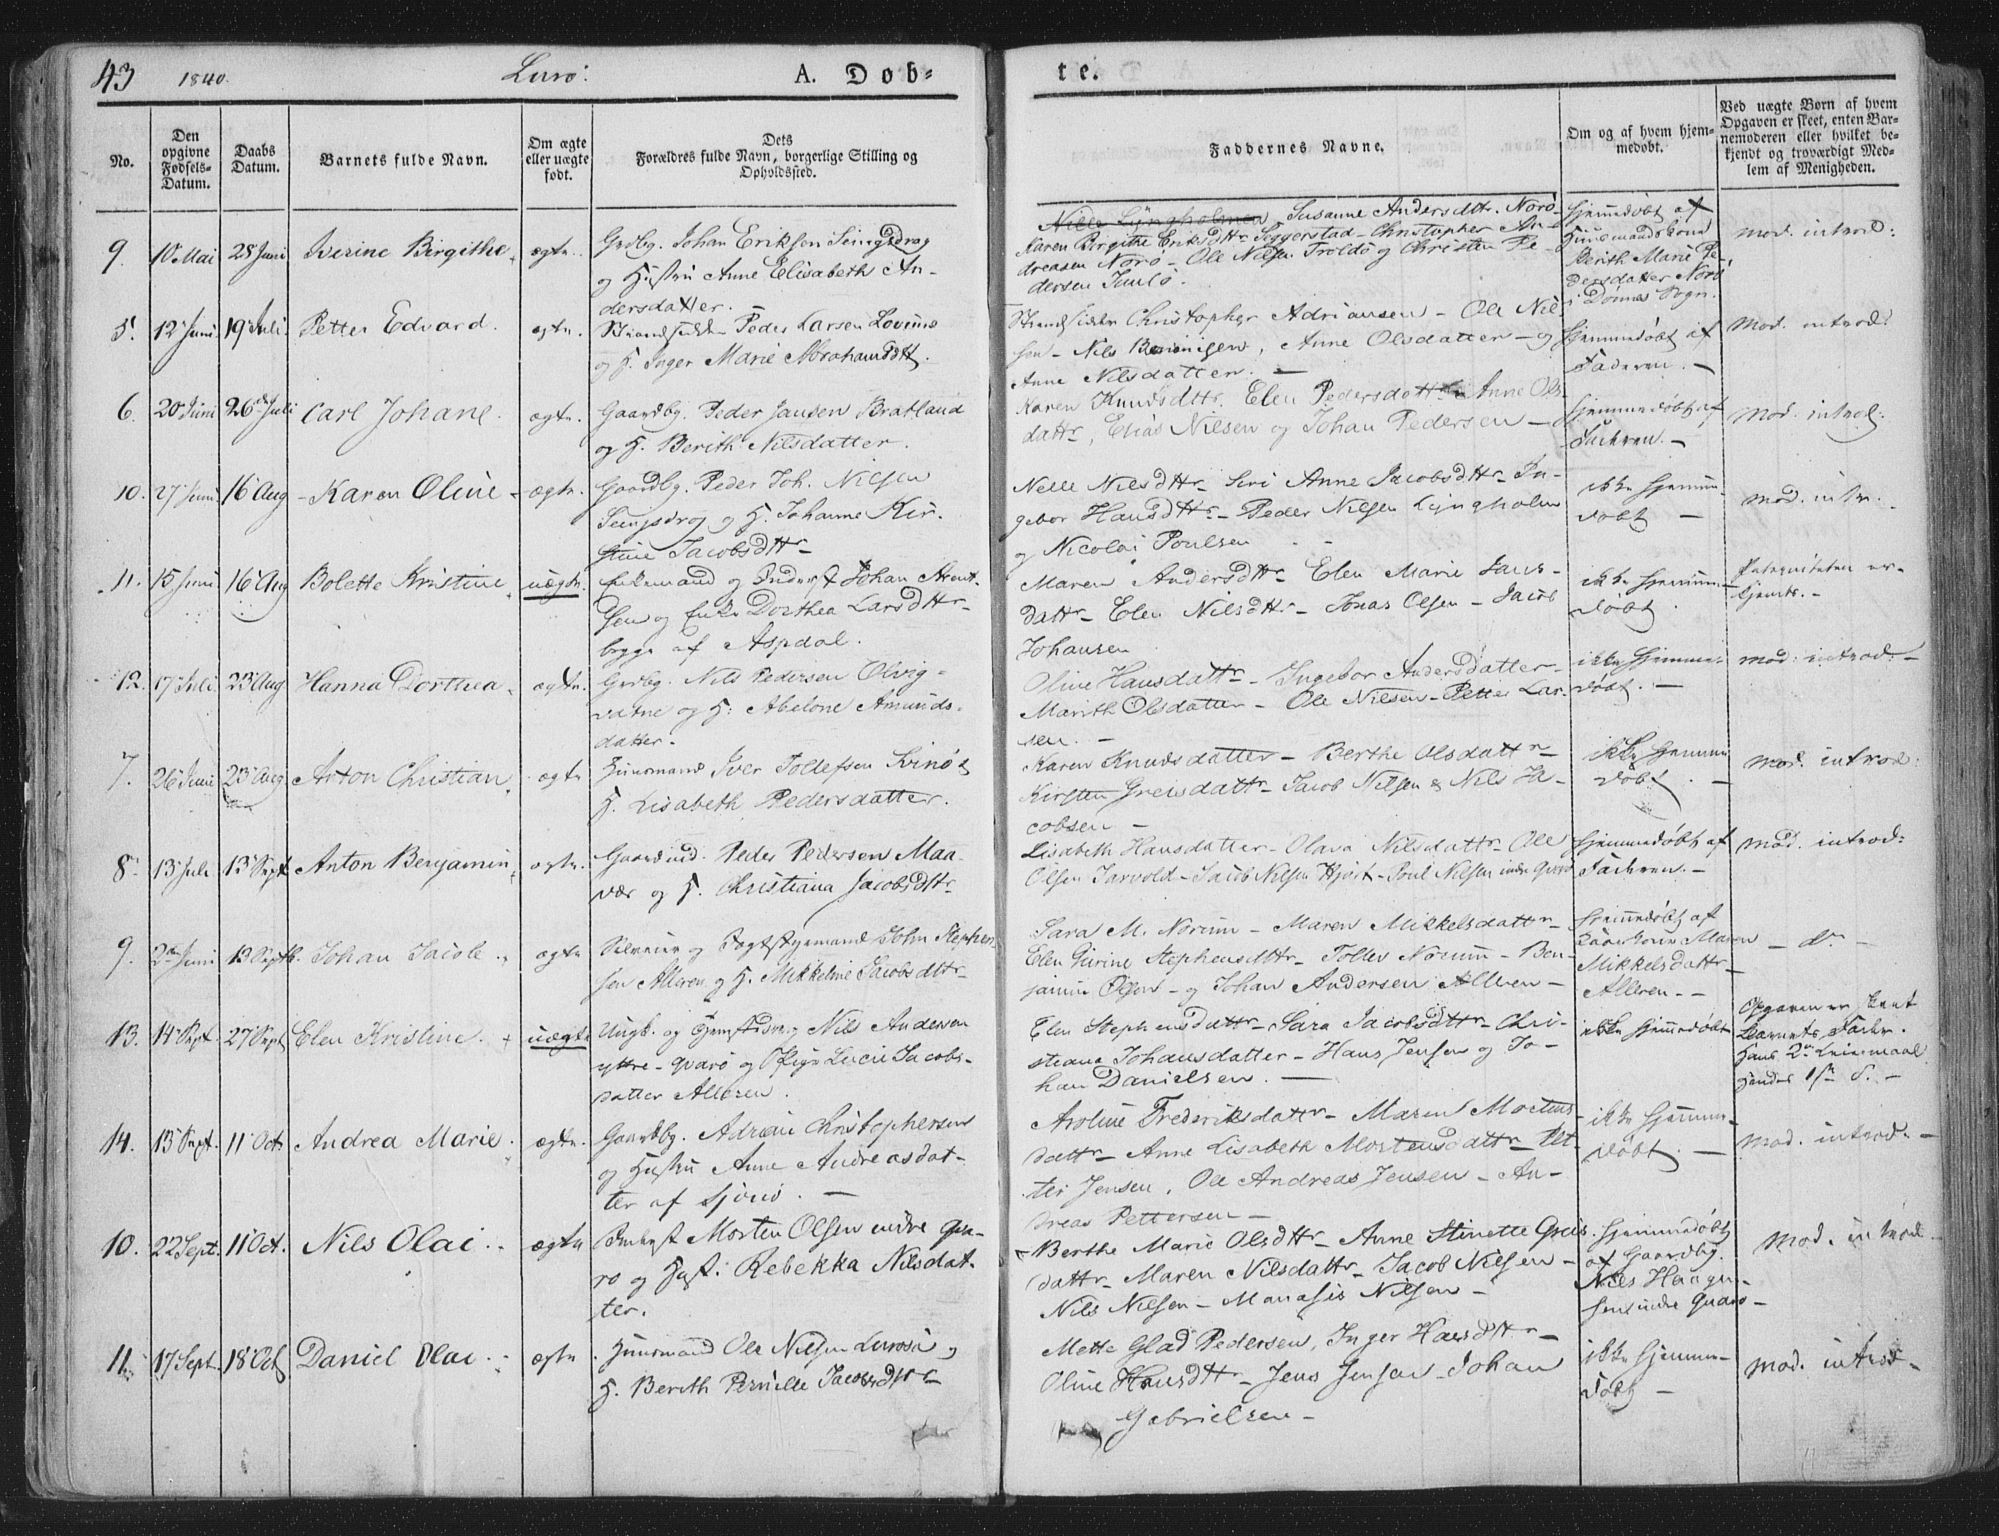 43 1840. Lurø: A. Døb-
te.
No.
Den opgivne Fødsels-Datum.
Daabs Datum.
Barnets fulde Navn.
Om ægte eller uægte født.
Dets Forældres fulde Navn, borgerlige Stilling og Opholdssted.
Faddernes Navne.
Om og af hvem hjemmedøbt.
Ved uægte Børn af hvem Opgaven er skeet, enten Barnemoderen eller hvilket bekjendt og troværdigt Medlem af Menigheden.
9. 10 Mai 28 Juni Iverine Birgithe. ægte.
Grdbg. Johan Erikson
og Hustru Anne Elisabeth An-
dersdatter.
Susanne Andersdttr. Norø-
Karen Birgithe Eriksdttr Siggerstad - Christopher An-
dreasen Norø - Ole Nilsen Troldø og Christen Pe-
dersen
Hjemmedøbt af
Huusmandskone
Berith Marie Pe-
dersdatter Norø
i Dønnes Sogn.
mod. introd:
5. 12 Juni 19 Juli. Petter Edvard. ægte.
Strandsidder Peder Larsen
og H. Inger Marie Abrahamsdtt.
Strandsidder Christopher Adriansen - Ole Nil-
sen - Nils, Anne Olsdatter - og
Anne Nilsdatter. -
Hjemmedøbt af
Faderen. -
mod. introd:
6. 20 Juni 26 Juli Carl Johan. ægte.
Gaardbg. Peder Jansen Bratland
og H. Berith Nilsdatter.
Karen Knudsdttr. Elen Pedersdattr Anne Ols-
dattr, Elias Nilsen og Johan Pedersen -
Hjemmedøbt af
Faderen. -
mod. introd:
10. 27 Juni 16 Aug - Karen Oline - ægte.
Gaardbg. Peder Joh. Nilsen
og H. Johanne Kir-
stine Jacobsdttr-
Nelle Nilsdttr - Siri Anne Jacobsdttr - In-
gebor Hansdttr. - Peder Nilsen Lyngholm
og Nicolai Poulsen
ikke hjemme-
døbt -
mod. intr. -
11. 15 Juni 16 Aug Bolette Kristine. uægte.
Enkemand og Inderst Johan Arent-
sen og Enke Dorthea Larsdttr-
begge af Aspdal.
Maren Andersdttr - Elen Marie Jans-
dattr - Elen Nilsdttr - Jonas Olsen - Jacob
Johansen
ikke hjemme-
døbt.
Paterniteten er-
kjendt. -
12. 17 Juli 23 Aug Hanna Dorthea. ægte.
Grdbg. Nils Pedersen Olvig-
vatne og H: Abelone Amunds-
datter.
Oline Hansdattr - Ingebor Andersdatter -
Marith Olsdatter - Ole Nilsen - Petter Lar-
sen. -
ikke hjemme-
døbt. -
mod: introd: -
7. 26 Juni 23 Aug. Anton Christian. ægte
Huusmand Iver Tollefsen Svinø &
H. Lisabeth Pedersdatter.
Karen Knudsdatter - Berthe Olsdattr -
Kirsten Greisdattr - Jacob Nilsen & Nils Ja-
cobsen -
ikke hjemme-
døbt. -
mod. introd:
8. 13 Juli 13 Sept. Anton Benjamin. ægte.
Gaardmd. Peder Pedersen Maa-
vær og H. Christiana Jacobsdttr.
Lisabeth Hansdatter - Olava Nilsdattr - Ole
Olsen - Jacob Nilsen Hjort - Poul Nilsen indre Quarø
Hjemmedøbt af
Faderen. -
mod. introd:
9. Juni 13 Septb. Johan Jacob. ægte
og John Stephen-
sen Alderen og H. Mikkeline Jacobsdttr -
Sara M. Norum - Maren Mikkelsdattr -
Elen Stephensdttr - Tolles Norum - Ben-
jamin Olsen - og Johan Andersen Alderen -
Hjemmedøbt af
Maren
Mikkelsdattr -
Alderen. -
- do -
13. 14 Sept. 27 Sept Elen Kristine. + uægte
Ungk. og Nils Andersen
yttre - Quarø og Pige Lucie Jacobs-
datter Alderen.
Elen Stephensdattr - Sara Jacobsdttr - Chri-
stiana Johansdatter - Hans Jensen og Jo-
han Danielsen. -
ikke hjemmedøbt
Opgaven er skeet
Barnets Fader.
Hans 2 Leiermaal
hendes 1ste d. -
14. 13 Sept. 11 Oct. Andrea Marie. ægte.
Gaardbg. Adrian Christophersen
og Hustru Anne Andreasdat-
ter af Sjonø. -
Aroline Frederiksdattr - Maren Mortens-
dattr - Anne Lisabeth Mortensdattr - Pet-
ter Jensen, Ole Andreas Jensen - An-
dreas Pettersen -
ikke hjemme-
døbt. -
mod. introd: -
10. 22 Sept. 11 Oct. Nils Olai.. ægte
Inderst Morten Olsen indre Qua-
rø og Hust: Rebekka Nilsdat-
ter.
Berthe Marie Olsdttr - Anne Stinette Greis-
dattr - Maren Nilsdattr - Jacob Nilsen -
Nils Nilsen - Manasis Nilsen -
Hjemmedøbt
af Gaardbg.
Niels Haagen-
sen indre Quarø -
mod. introd.
11. 17 Sept. 18 Oct Daniel Olai. ægte
Huusmand Ole Nilsen Lurøsø og
H. Berith Pernille Jacobsdttr -
Mette Glad Pedersen, Inger Hansdttr -
Oline Hansdttr - Jens Jensen - Johan
Gabrielsen -
ikke hjemme-
døbt -
mod. introd. -